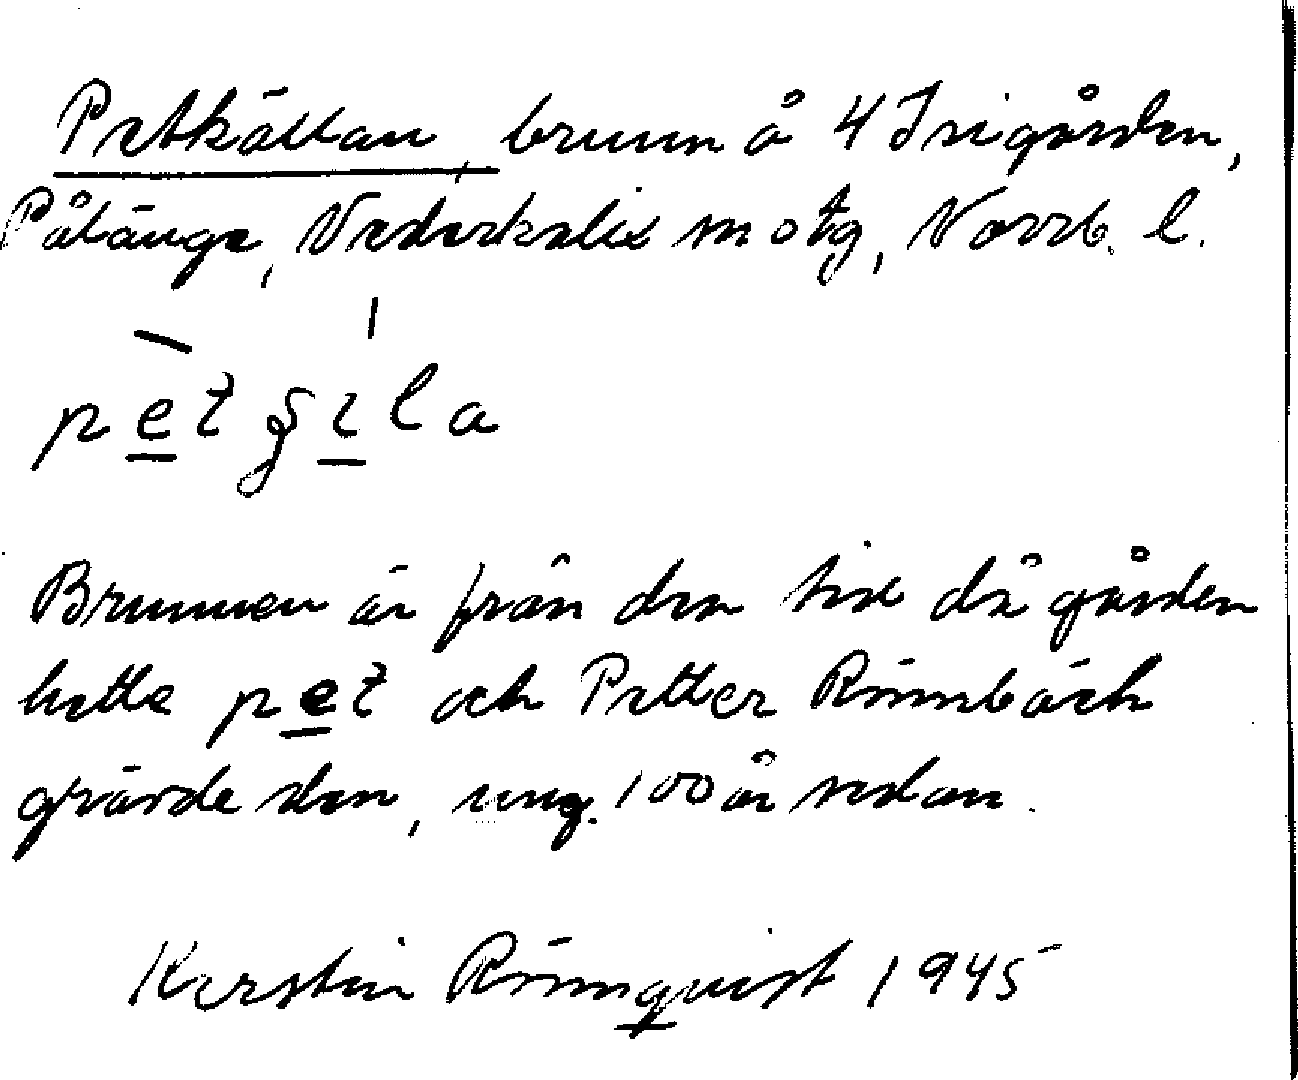 Petkällan, brunn å 4 Isigården,
Pålänge, Nederkalix sn o tg, Norrb. l.
pet ʂɩla
Brunnen är från den tid då gården
hette pet och Petter Rönnbäck
grävde den, ung. 100 år sedan.
Kerstin Rönnquist 1945